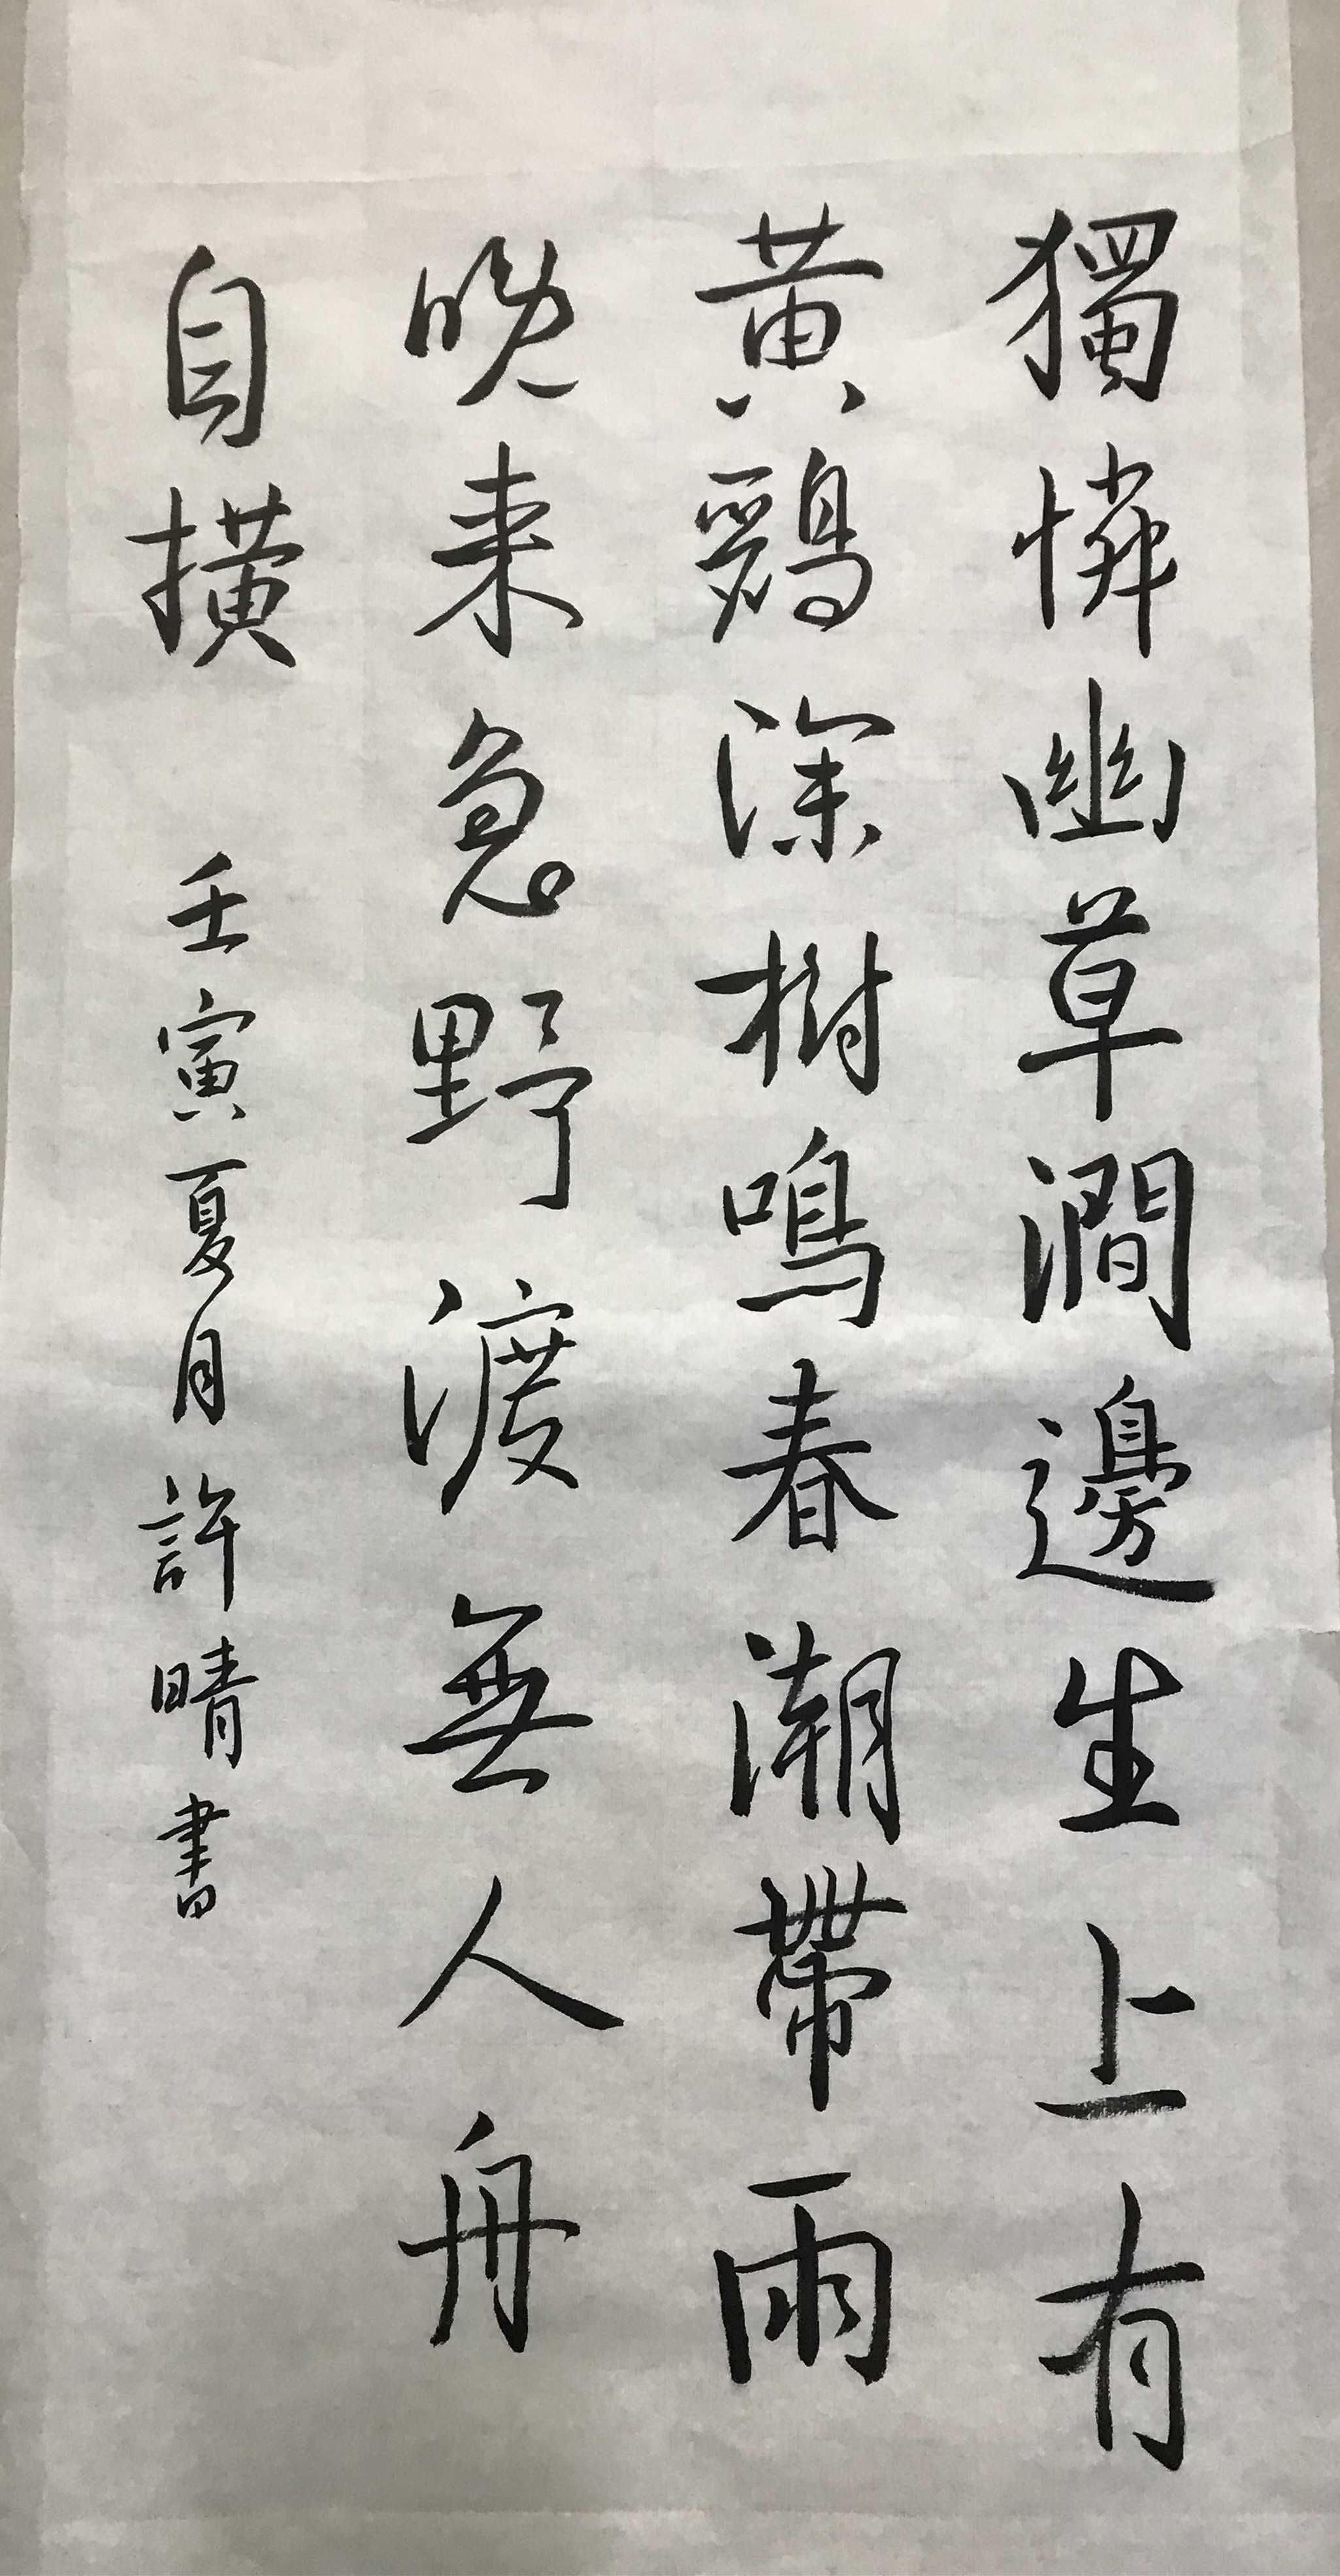 獨憐幽草澗邊生上有
黃鸝深樹鳴春潮帶雨
晚来急野渡無人舟
自横 壬寅夏月許晴書